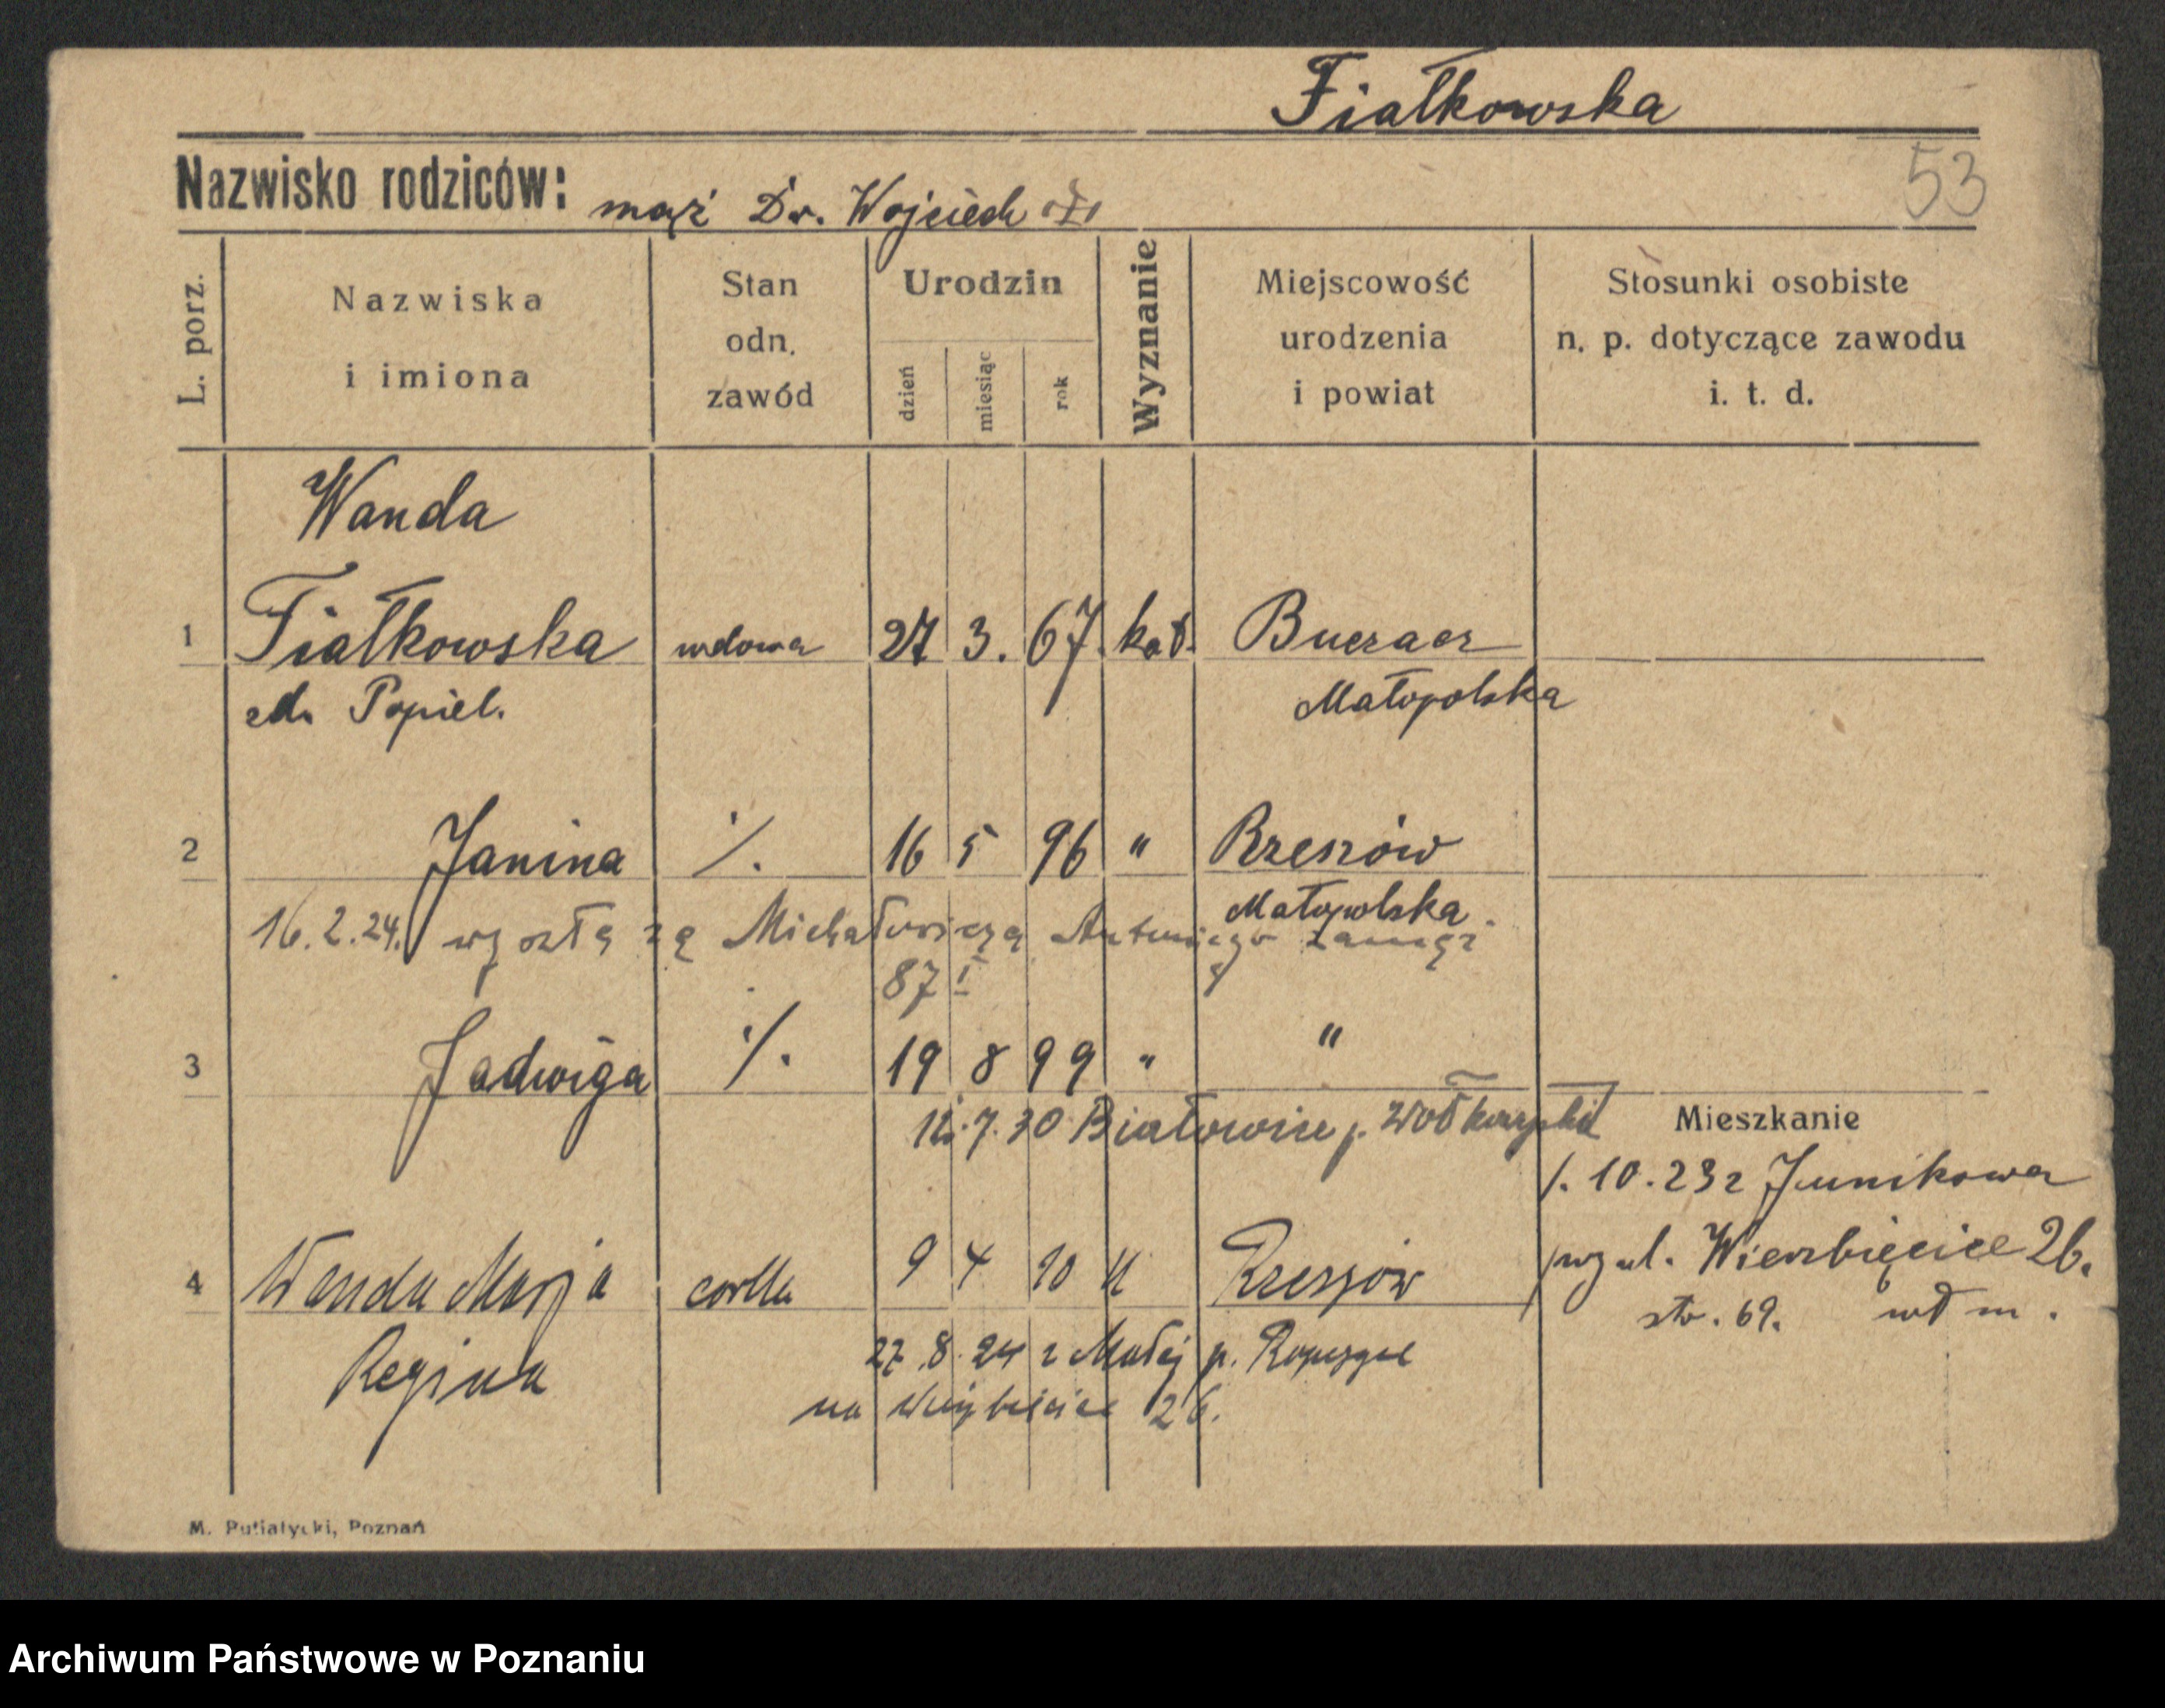 Fiałkowska
53
Nazwisko rodziców: mąż Dr. Wojciech
L. porz.
Nazwiska i imiona
Stan odn. zawód
Urodzin
dzień
miesiąc
rok
Wyznanie
Miejscowość urodzenia i powiat
Stosunki osobiste n. p. dotyczące zawodu i. t. d.
Wanda
1 Fiałkowska wdowa 27 3. 67. kat. Buczacz
zd. Popiel. Małopolska
2 Janina ./. 16 5 96 " Rzeszów
Małopolska.
16.2.24. wyszła za Michałowicza Antoniego zamąż
87 I
3 Jadwiga ./. 19 8 99 " "
7.30 Białowice p.
Mieszkanie
1. 10. 23 z Junikowa
przy ul. Wierzbięcice 26.
str. 69. wł m.
4 Wanda Marja córka 9 4 10 " Rzeszów
Regina
27.8.24 z Małej p. Ropczyce
na Wierzbięcice 26.
M. Putiatycki, Poznań
Archiwum Państwowe w Poznaniu